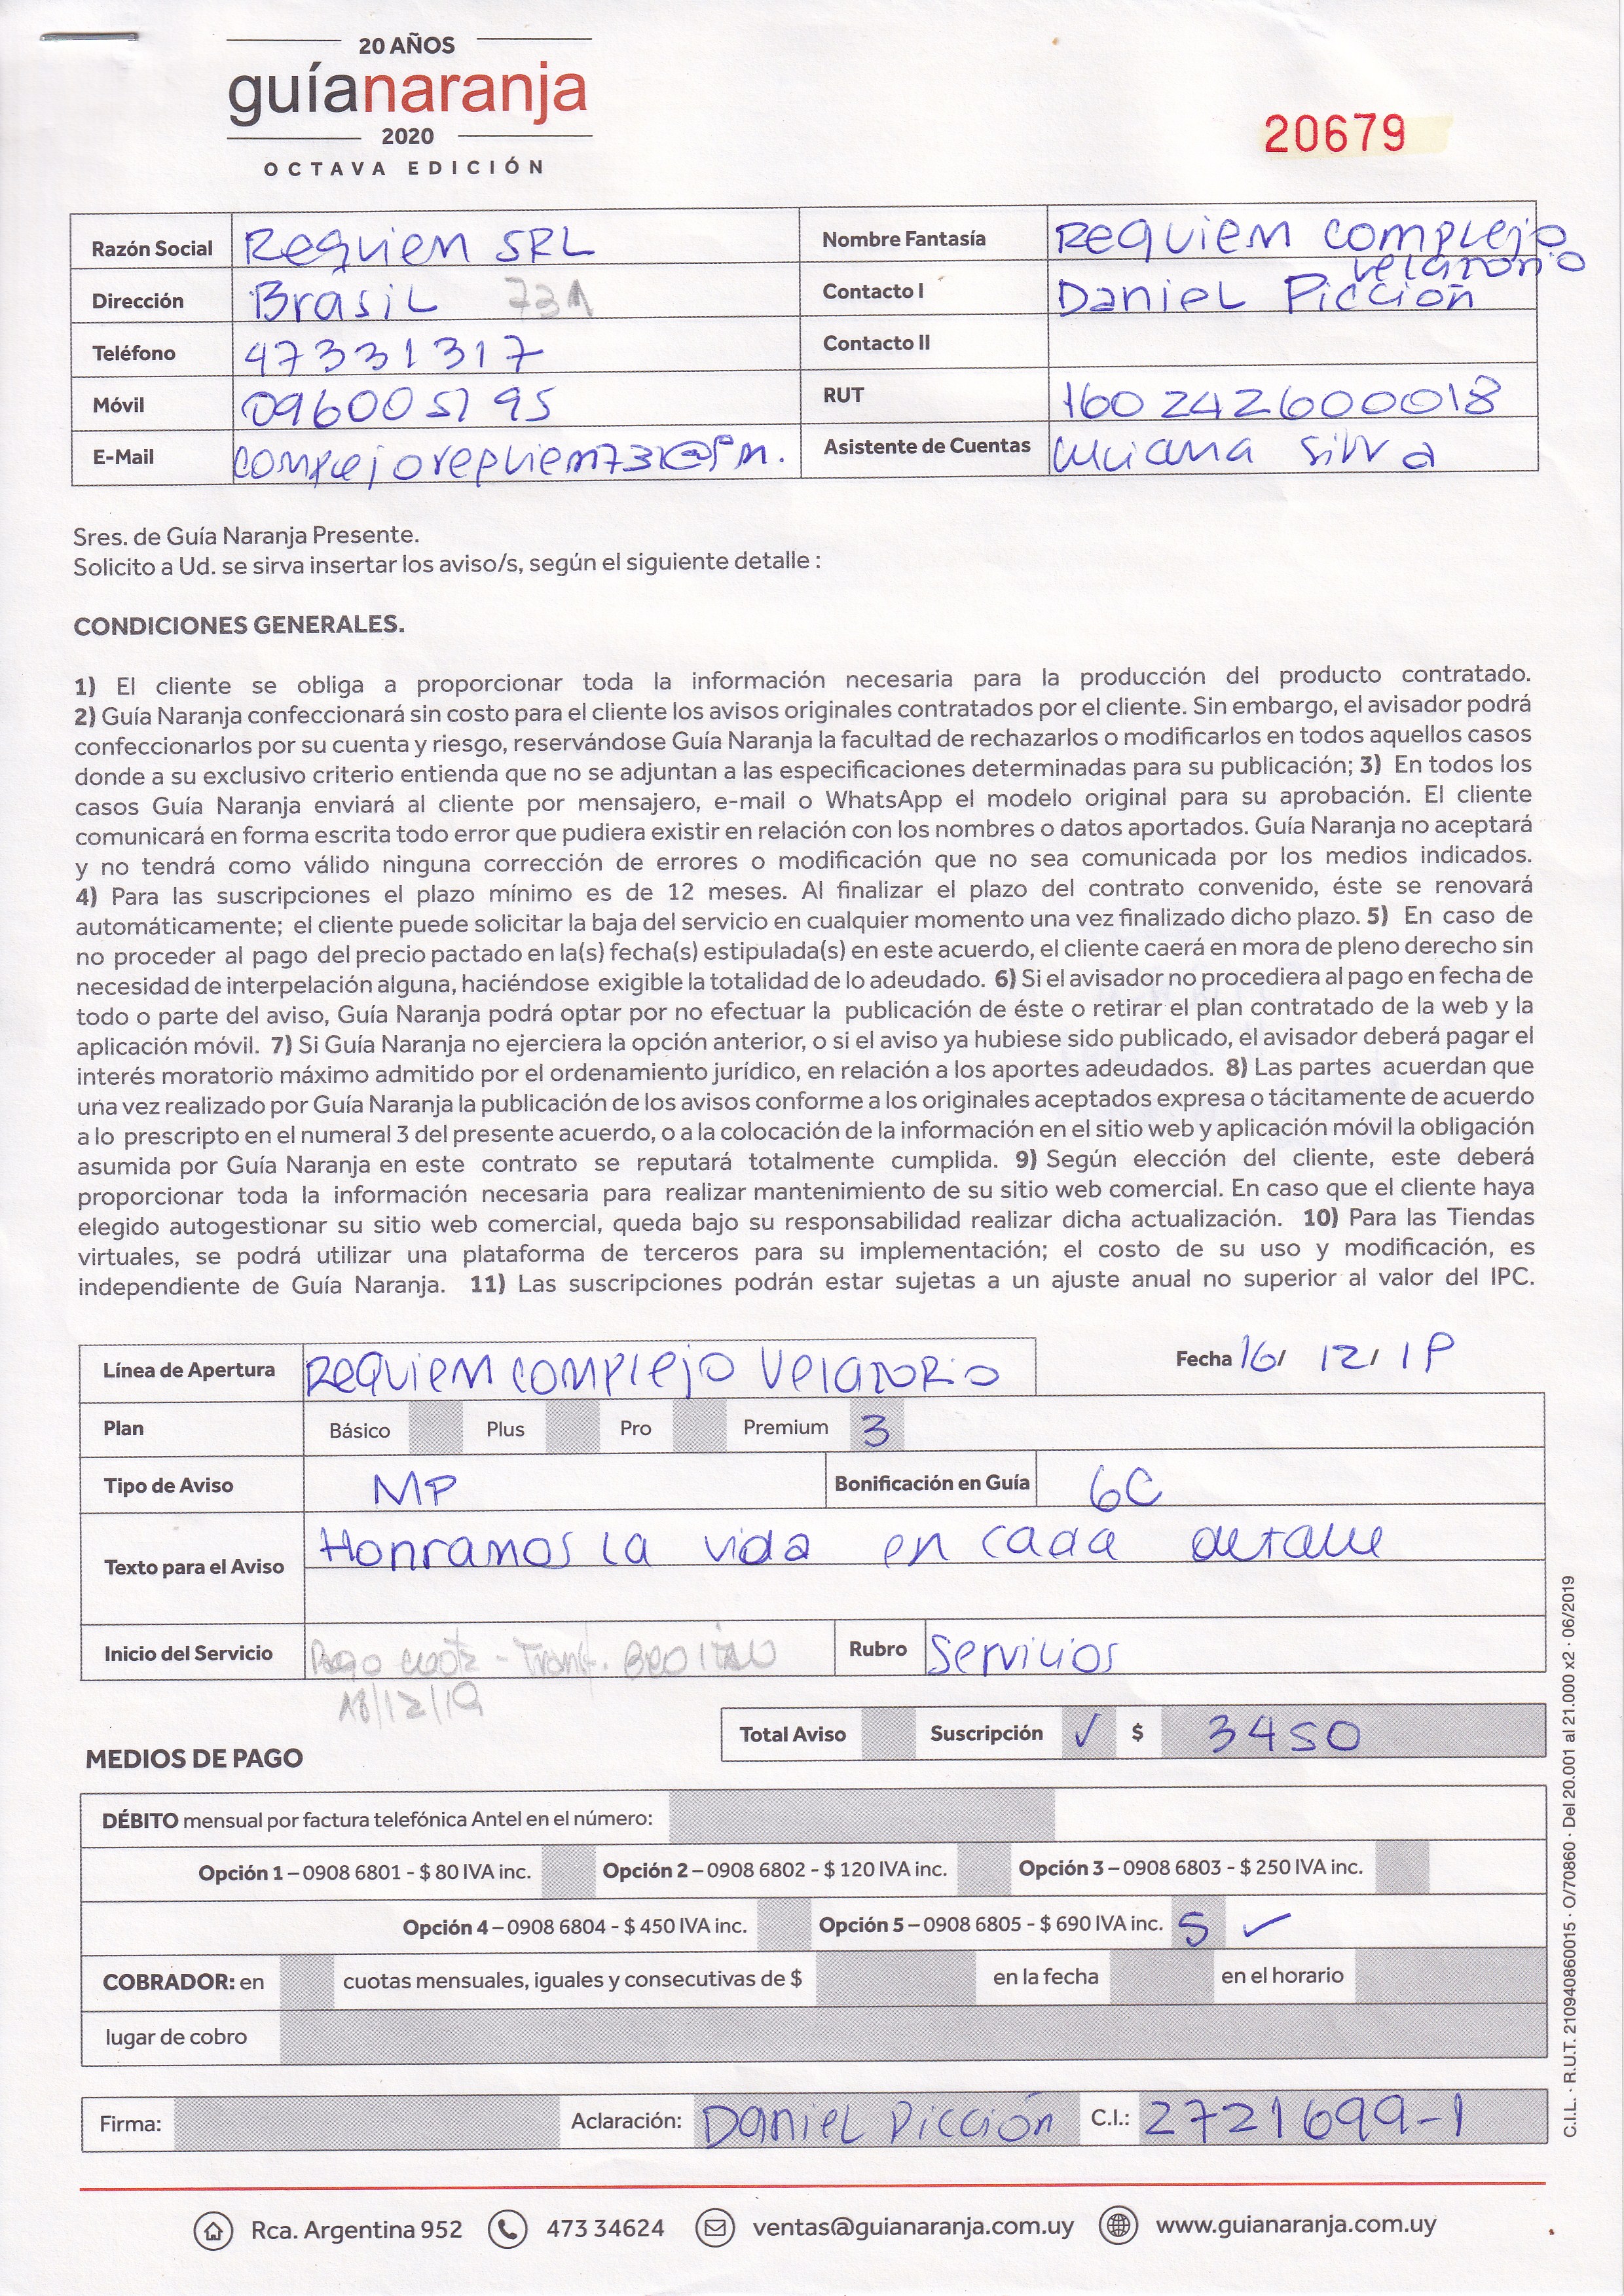 20 AÑOS
guíanaranja
2020
OCTAVA EDICIÓN
20679
Razón Social Requiem SRL Nombre Fantasía Requiem complejo velatorio
Dirección Brasil 731 Contacto I Daniel Piccion
Teléfono 47331317 Contacto II
Móvil 096005195 RUT 160242600018
E-Mail complejorequiem731@gm. Asistente de Cuentas Luciana Silva
Sres. de Guía Naranja Presente.
Solicito a Ud. se sirva insertar los aviso/s, según el siguiente detalle :
CONDICIONES GENERALES.
1) El cliente se obliga a proporcionar toda la información necesaria para la producción del producto contratado.
2) Guía Naranja confeccionará sin costo para el cliente los avisos originales contratados por el cliente. Sin embargo, el avisador podrá
confeccionarlos por su cuenta y riesgo, reservándose Guía Naranja la facultad de rechazarlos o modificarlos en todos aquellos casos
donde a su exclusivo criterio entienda que no se adjuntan a las especificaciones determinadas para su publicación; 3) En todos los
casos Guía Naranja enviará al cliente por mensajero, e-mail o WhatsApp el modelo original para su aprobación. El cliente
comunicará en forma escrita todo error que pudiera existir en relación con los nombres o datos aportados. Guía Naranja no aceptará
y no tendrá como válido ninguna corrección de errores o modificación que no sea comunicada por los medios indicados.
4) Para las suscripciones el plazo mínimo es de 12 meses. Al finalizar el plazo del contrato convenido, éste se renovará
automáticamente; el cliente puede solicitar la baja del servicio en cualquier momento una vez finalizado dicho plazo. 5) En caso de
no proceder al pago del precio pactado en la(s) fecha(s) estipulada(s) en este acuerdo, el cliente caerá en mora de pleno derecho sin
necesidad de interpelación alguna, haciéndose exigible la totalidad de lo adeudado. 6) Si el avisador no procediera al pago en fecha de
todo o parte del aviso, Guía Naranja podrá optar por no efectuar la publicación de éste o retirar el plan contratado de la web y la
aplicación móvil. 7) Si Guía Naranja no ejerciera la opción anterior, o si el aviso ya hubiese sido publicado, el avisador deberá pagar el
interés moratorio máximo admitido por el ordenamiento jurídico, en relación a los aportes adeudados. 8) Las partes acuerdan que
una vez realizado por Guía Naranja la publicación de los avisos conforme a los originales aceptados expresa o tácitamente de acuerdo
a lo prescripto en el numeral 3 del presente acuerdo, o a la colocación de la información en el sitio web y aplicación móvil la obligación
asumida por Guía Naranja en este contrato se reputará totalmente cumplida. 9) Según elección del cliente, este deberá
proporcionar toda la información necesaria para realizar mantenimiento de su sitio web comercial. En caso que el cliente haya
elegido autogestionar su sitio web comercial, queda bajo su responsabilidad realizar dicha actualización. 10) Para las Tiendas
virtuales, se podrá utilizar una plataforma de terceros para su implementación; el costo de su uso y modificación, es
independiente de Guía Naranja. 11) Las suscripciones podrán estar sujetas a un ajuste anual no superior al valor del IPC.
Línea de Apertura Requiem complejo velatorio Fecha 16/ 12/ 19
Plan Básico Plus Pro Premium 3
Tipo de Aviso MP Bonificación en Guía 6C
Texto para el Aviso Honramos la vida en cada detalle
Inicio del Servicio Pago cuota - Transf. BCO ITAU Rubro Servicios
18/12/19
Total Aviso Suscripción ✓ $ 3450
MEDIOS DE PAGO
DÉBITO mensual por factura telefónica Antel en el número:
Opción 1 – 0908 6801 - $ 80 IVA inc. Opción 2 – 0908 6802 - $ 120 IVA inc. Opción 3 – 0908 6803 - $ 250 IVA inc.
Opción 4 – 0908 6804 - $ 450 IVA inc. Opción 5 – 0908 6805 - $ 690 IVA inc. 5 ✓
COBRADOR: en cuotas mensuales, iguales y consecutivas de $ en la fecha en el horario
lugar de cobro
Firma: Aclaración: Daniel Piccion C.I.: 2721699-1
Rca. Argentina 952 473 34624 ventas@guianaranja.com.uy www.guianaranja.com.uy
C.I.L. · R.U.T. 210940860015 · O/70860 · Del 20.001 al 21.000 x2 · 06/2019